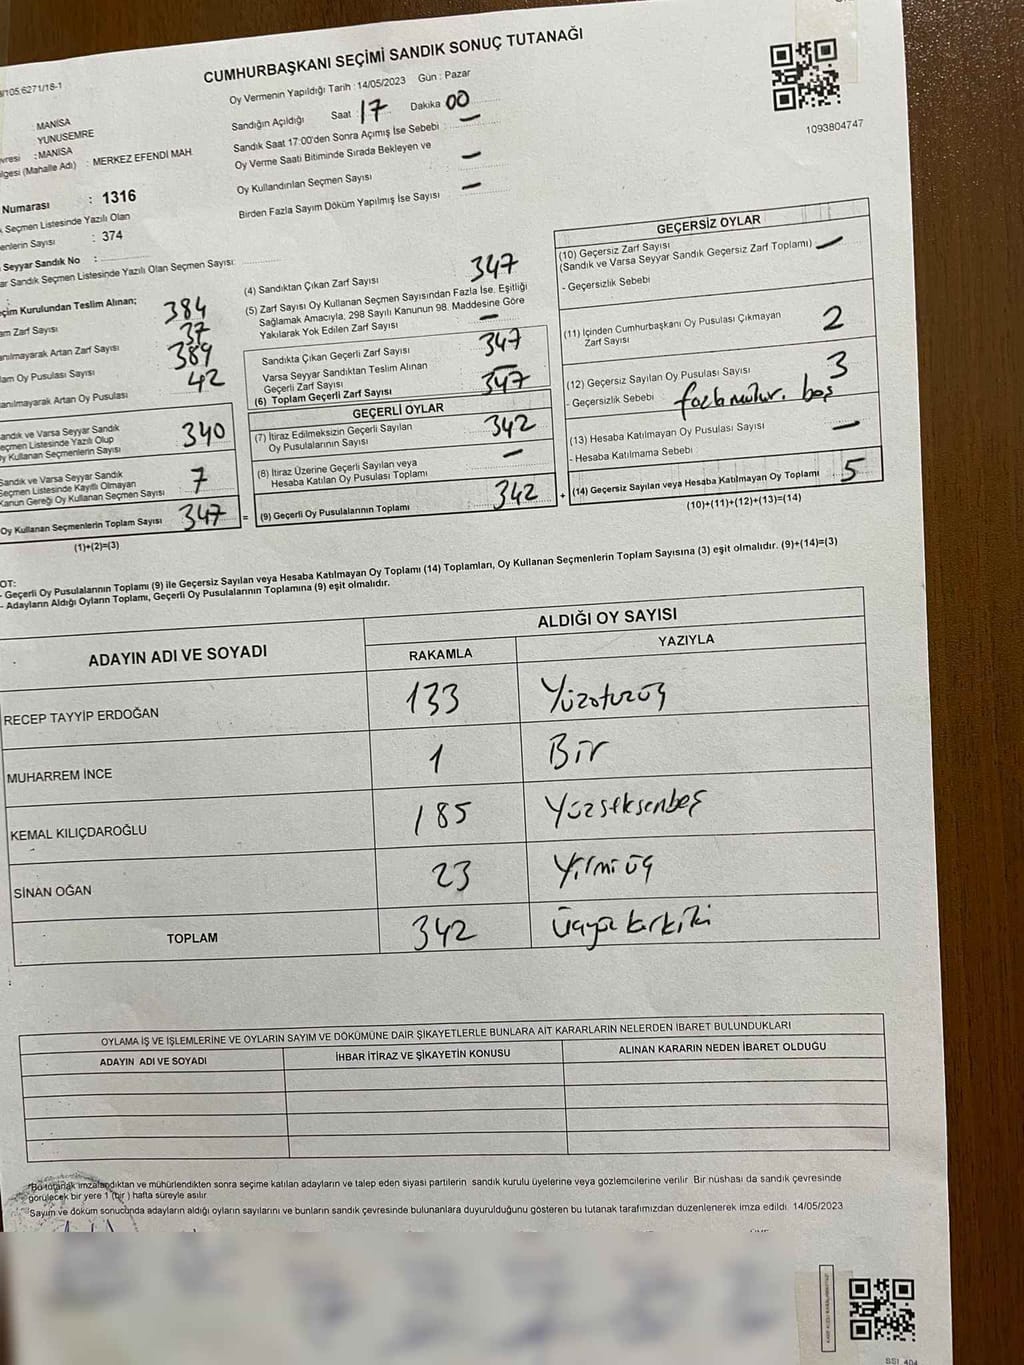 CUMHURBAŞKANI SEÇİMİ SANDIK SONUÇ TUTANAĞI
/105.6271/18-1
Oy Vermenin Yapıldığı Tarih : 14/05/2023 Gün : Pazar
: MANİSA
YUNUSEMRE
: MANİSA
(Mahalle Adı) : MERKEZ EFENDİ MAH.
Numarası : 1316
Seçmen Listesinde Yazılı Olan
Sayısı : 374
Seyyar Sandık No :
Sandık Seçmen Listesinde Yazılı Olan Seçmen Sayısı:
Sandığın Açıldığı Saat 17 Dakika 00
Sandık Saat 17:00'den Sonra Açımış İse Sebebi : -
Oy Verme Saati Bitiminde Sırada Bekleyen ve
Oy Kullandırılan Seçmen Sayısı -
Birden Fazla Sayım Döküm Yapılmış İse Sayısı -
1093804747
Kurulundan Teslim Alınan;
Zarf Sayısı 384
Artan Zarf Sayısı 37
Oy Pusulası Sayısı 389
Artan Oy Pusulası 42
Sandık ve Varsa Seyyar Sandık
Seçmen Listesinde Yazılı Olup
Oy Kullanan Seçmenlerin Sayısı 340
Sandık ve Varsa Seyyar Sandık
Seçmen Listesinde Kayıtlı Olmayan
Kanun Gereği Oy Kullanan Seçmen Sayısı 7
Oy Kullanan Seçmenlerin Toplam Sayısı 347 =
(1)+(2)=(3)
(4) Sandıktan Çıkan Zarf Sayısı 347
(5) Zarf Sayısı Oy Kullanan Seçmen Sayısından Fazla İse, Eşitliği
Sağlamak Amacıyla, 298 Sayılı Kanunun 98. Maddesine Göre
Yakılarak Yok Edilen Zarf Sayısı -
Sandıkta Çıkan Geçerli Zarf Sayısı 347
Varsa Seyyar Sandıktan Teslim Alınan
Geçerli Zarf Sayısı -
(6) Toplam Geçerli Zarf Sayısı 347
GEÇERLİ OYLAR
(7) İtiraz Edilmeksizin Geçerli Sayılan
Oy Pusulalarının Sayısı 342
(8) İtiraz Üzerine Geçerli Sayılan veya
Hesaba Katılan Oy Pusulası Toplamı -
(9) Geçerli Oy Pusulalarının Toplamı 342 +
GEÇERSİZ OYLAR
(10) Geçersiz Zarf Sayısı
(Sandık ve Varsa Seyyar Sandık Geçersiz Zarf Toplamı) -
- Geçersizlik Sebebi
(11) İçinden Cumhurbaşkanı Oy Pusulası Çıkmayan
Zarf Sayısı 2
(12) Geçersiz Sayılan Oy Pusulası Sayısı 3
- Geçersizlik Sebebi boş
(13) Hesaba Katılmayan Oy Pusulası Sayısı -
- Hesaba Katılmama Sebebi
(14) Geçersiz Sayılan veya Hesaba Katılmayan Oy Toplamı 5
(10)+(11)+(12)+(13)=(14)
OT:
- Geçerli Oy Pusulalarının Toplamı (9) ile Geçersiz Sayılan veya Hesaba Katılmayan Oy Toplamı (14) Toplamları, Oy Kullanan Seçmenlerin Toplam Sayısına (3) eşit olmalıdır. (9)+(14)=(3)
- Adayların Aldığı Oyların Toplamı, Geçerli Oy Pusulalarının Toplamına (9) eşit olmalıdır.
ADAYIN ADI VE SOYADI
ALDIĞI OY SAYISI
RAKAMLA YAZIYLA
RECEP TAYYİP ERDOĞAN 133 Yüzotuzüç
MUHARREM İNCE 1 Bir
KEMAL KILIÇDAROĞLU 185 Yüzseksenbeş
SİNAN OĞAN 23 Yirmiüç
TOPLAM 342 Üçyüzkırkiki
OYLAMA İŞ VE İŞLEMLERİNE VE OYLARIN SAYIM VE DÖKÜMÜNE DAİR ŞİKAYETLERLE BUNLARA AİT KARARLARIN NELERDEN İBARET BULUNDUKLARI
ADAYIN ADI VE SOYADI İHBAR İTİRAZ VE ŞİKAYETİN KONUSU ALINAN KARARIN NEDEN İBARET OLDUĞU
*Bu tutanak imzalandıktan ve mühürlendikten sonra seçime katılan adayların ve talep eden siyasi partilerin sandık kurulu üyelerine veya gözlemcilerine verilir. Bir nüshası da sandık çevresinde
görülecek bir yere 1 (bir) hafta süreyle asılır.
*Sayım ve döküm sonucunda adayların aldığı oyların sayılarını ve bunların sandık çevresinde bulunanlara duyurulduğunu gösteren bu tutanak tarafımızdan düzenlenerek imza edildi. 14/05/2023